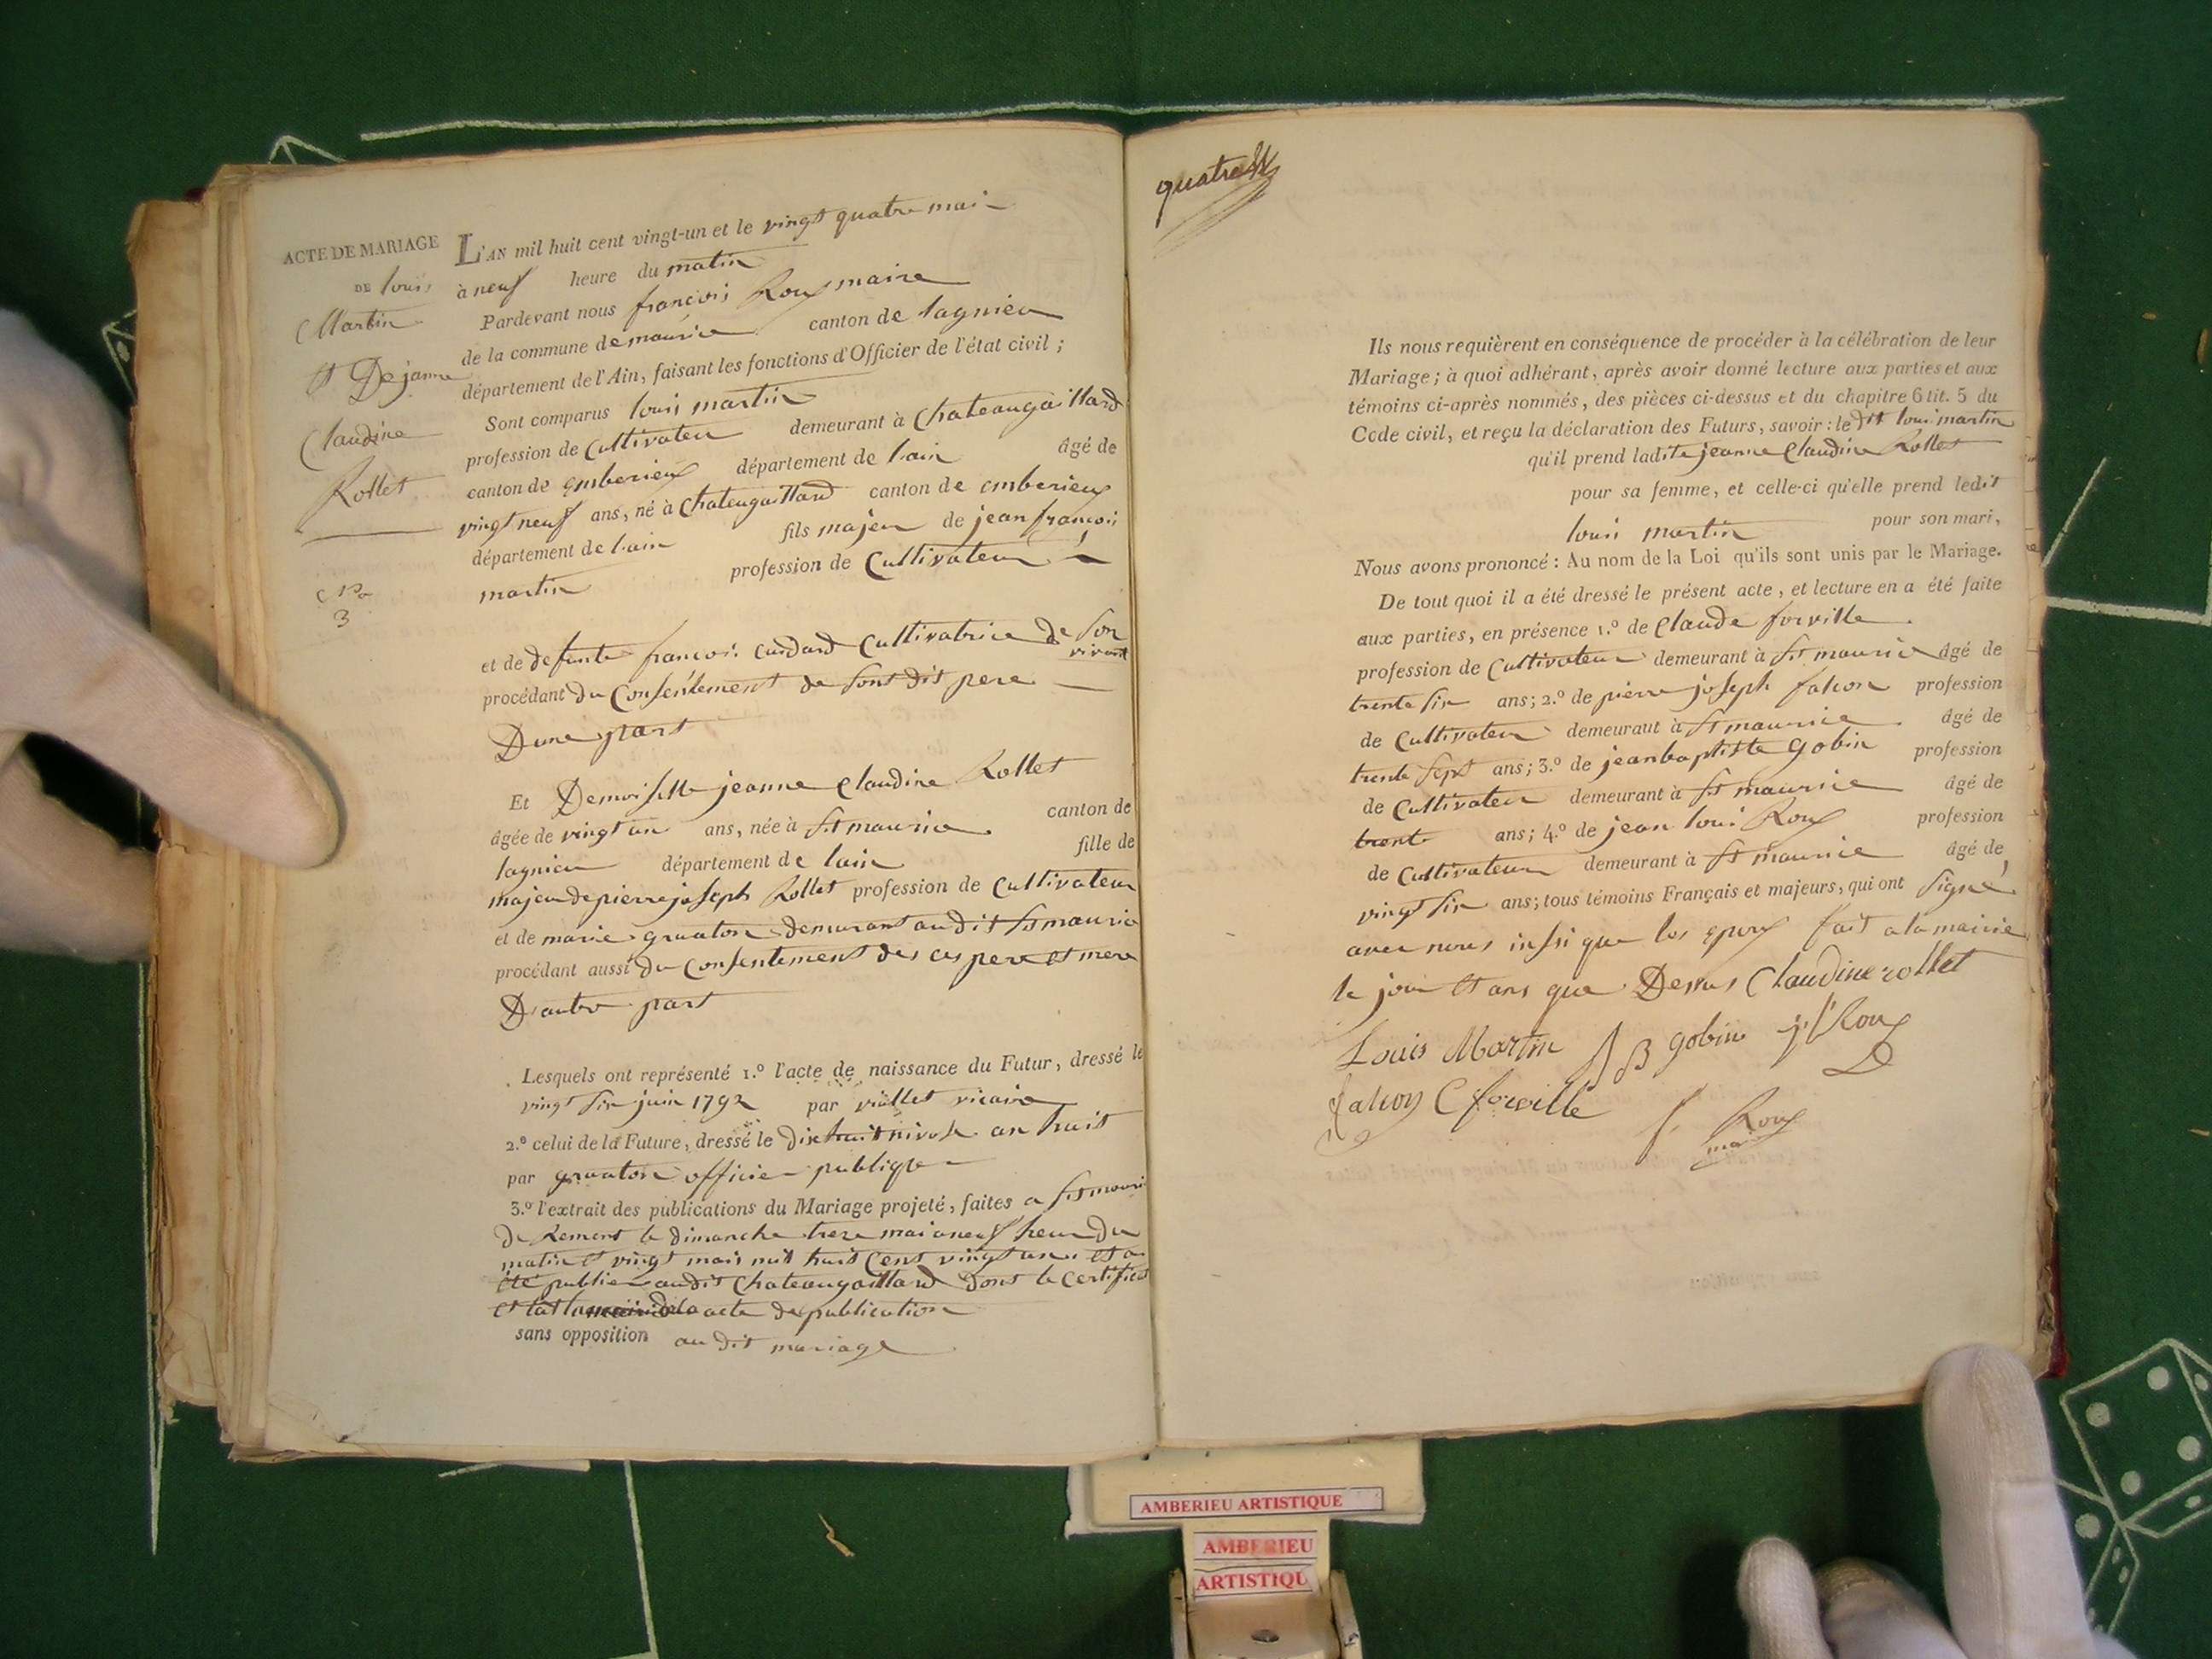 ACTE DE MARIAGE
DE louis
Martin
et De janne
Claudine
Rollet
No
3
L'AN mil huit cent vingt-un et le vingt quatre mai
à neuf heure du matin
Pardevant nous françois Roux maire
de la commune de maurice canton de lagnieu
département de l'Ain, faisant les fonctions d'Officier de l'état civil ;
Sont comparus louis martin
profession de Cultivateur demeurant à Chateaugaillard
canton de emberieux département de l'ain âgé de
vingt neuf ans, né à Chateugaillard canton de emberieux
département de l'ain fils majeur de jean françois
martin profession de Cultivateur
et de defunte françoi. cudard Cultivatrice de son vivant
procédant du Consentement de sont dit pere
D'une part
Et Demoiselle jeanne Claudine Rollet
âgée de vingt un ans, née à st maurice canton de
lagnieu département de lain fille de
majeur de pierre joseph Rollet profession de Cultivateur
et de marie gruaton demurant audit st maurice
procédant aussi du Consentement des ces pere et mere
D'autre part
Lesquels ont représenté 1.º l'acte de naissance du Futur, dressé le
vingt six juin 1792 par viallet vicaire
2.º celui de la Future, dressé le dixhuit nivose an huit
par gruaton officier publique
3.º l'extrait des publications du Mariage projeté, faites a st mauri
de Remens le dimanche treze mai a neuf heur du
matin et vingt mais mil huit Cent vingt un. et a
été publier audit Chateaugaillard Dont le Certificat
acte de publication
sans opposition au dit mariage
quatre
Ils nous requièrent en conséquence de procéder à la célébration de leur
Mariage ; à quoi adhérant, après avoir donné lecture aux parties et aux
témoins ci-après nommés, des pièces ci-dessus et du chapitre 6 tit. 5 du
Code civil, et reçu la déclaration des Futurs, savoir : le dit loui martin
qu'il prend ladite jeanne Claudine Rollet
pour sa femme, et celle-ci qu'elle prend ledit
loui martin pour son mari,
Nous avons prononcé : Au nom de la Loi qu'ils sont unis par le Mariage.
De tout quoi il a été dressé le présent acte, et lecture en a été faite
aux parties, en présence 1.º de Claude forville
profession de Cultivateur demeurant à st maurice âgé de
trente six ans ; 2.º de pierre joseph falcon profession
de Cultivateur demeuraut à st maurice âgé de
trente sept ans ; 3.º de jeanbaptiste gobin profession
de Cultivateur demeurant à st maurice âgé de
trent ans ; 4.º de jean loui Roux profession
de Cultivateur demeurant à st maurice âgé de
vingt six ans ; tous témoins Français et majeurs, qui ont signé
avec nous insi que les epoux fait a la mairie
le jour et ans que Dessus Claudine rollet
Louis Martin J B gobin j l Roux
falcon C forville f. Roux
maire
AMBERIEU ARTISTIQUE
AMBERIEU
ARTISTIQU